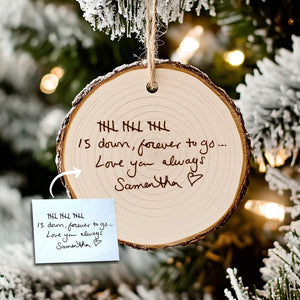 15 down, forever to go...
Love you always
Samantha
15 down, forever to go...
Love you always
Samantha